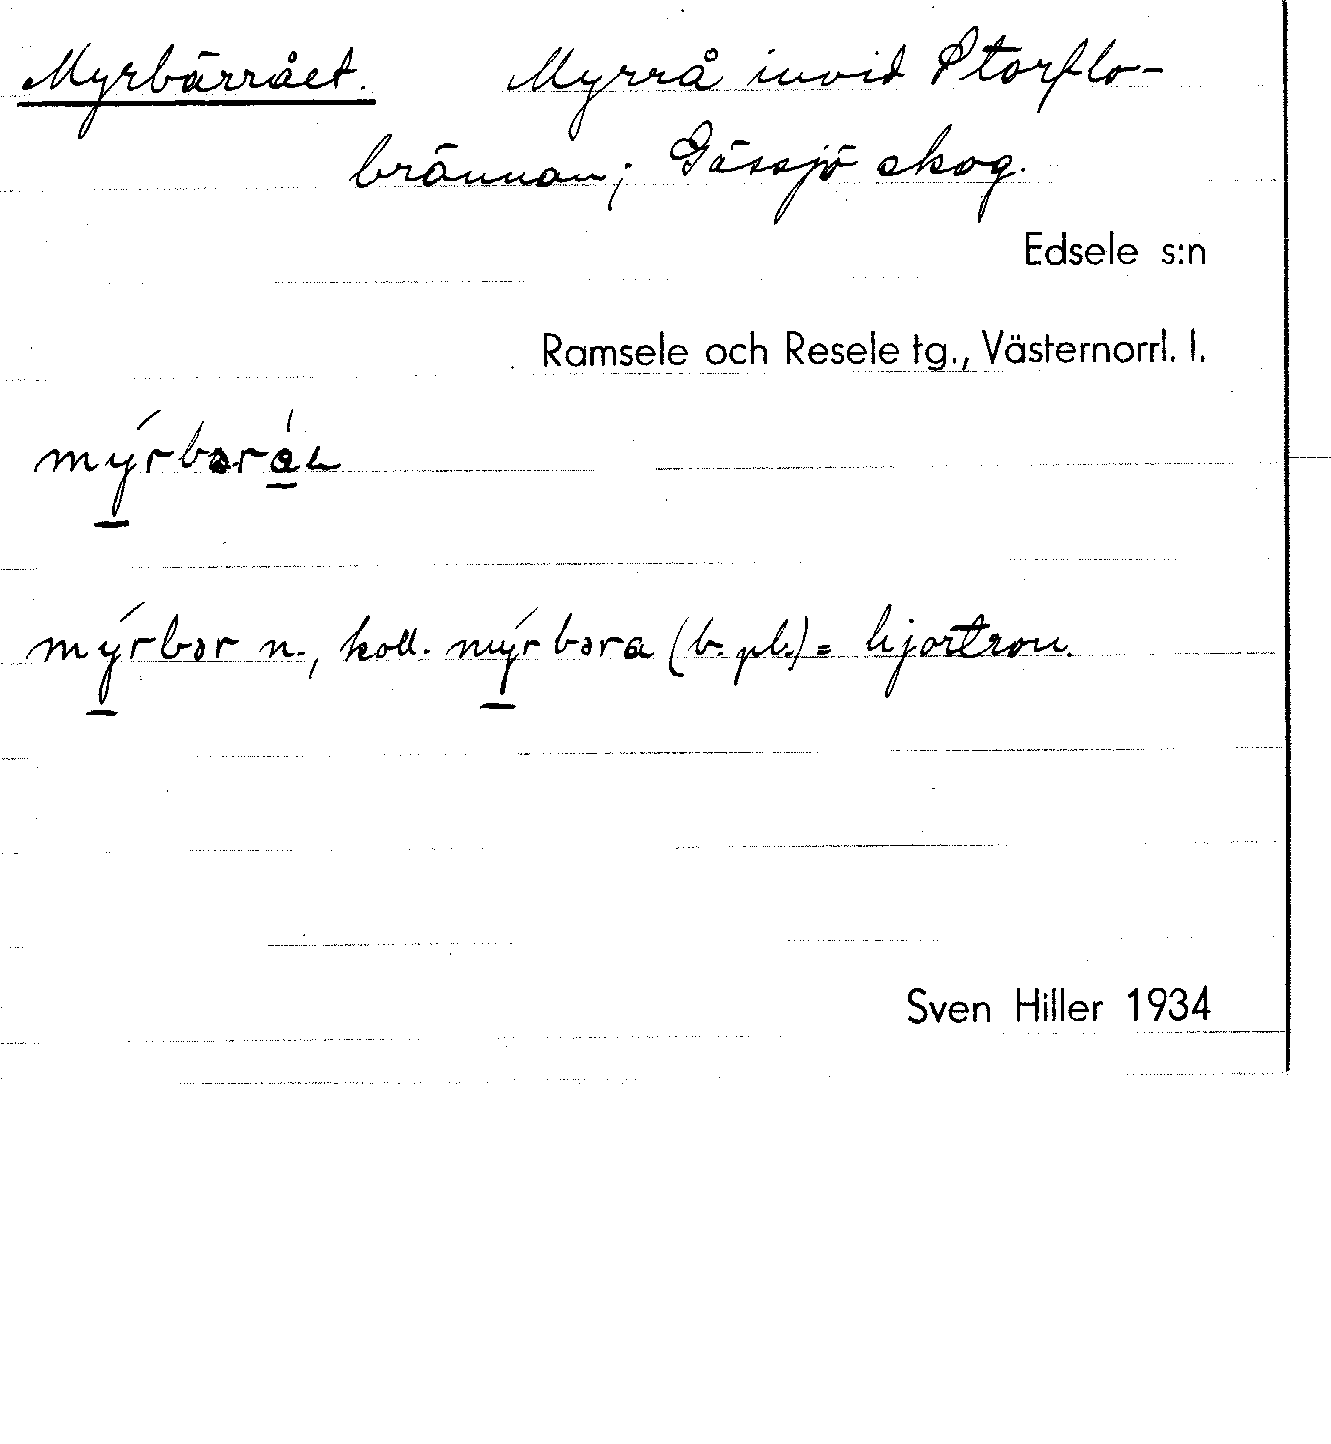 Myrbärrået. Myrrå invid Storflo-
brännan; Gåssjö skog.
Edsele s:n
Ramsele och Resele tg., Västernorrl. l.
n., koll. (b. pl.) = hjortron.
Sven Hiller 1934